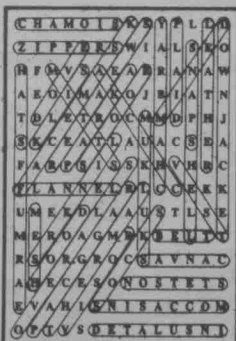 CHAMOISKSYPLLO
ZIPPERSWIALSKO
HFMVSAEAERANAW
AEOIMAKOJRIATN
TDLETROCMMDPHJ
SKCEATLAUACSEA
FARPSISSKHVHRC
FLANNELRLCCEKK
UMEKDLAAUSTLSE
MEROAGMRKBERUTT
RSORGROCSAVNAC
AHECESONOSTETS
EVAHIKNISACCOM
OPTYSDETALUSNI